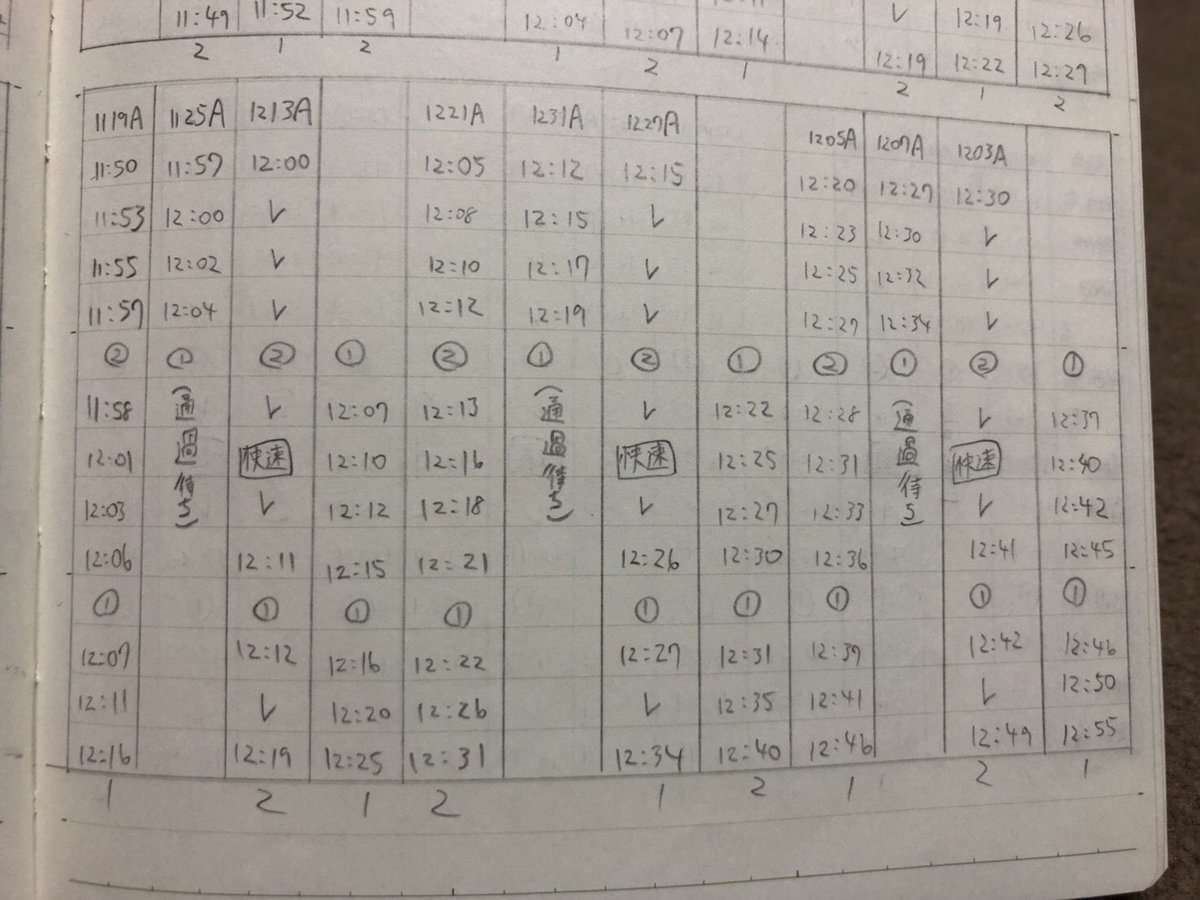 11:49 11:52 11:59 12:04 12:07 12:14 レ 12:19 12:26
12:19 12:22 12:29
2 1 2 1 2 1 2 1 2
1119A 1125A 1213A 1221A 1231A 1227A 1205A 1207A 1203A
11:50 11:57 12:00 12:05 12:12 12:15 12:20 12:27 12:30
11:53 12:00 レ 12:08 12:15 レ 12:23 12:30 レ
11:55 12:02 レ 12:10 12:17 レ 12:25 12:32 レ
11:57 12:04 レ 12:12 12:19 レ 12:27 12:34 レ
② ① ② ① ② ① ② ① ② ① ② ①
11:58 (通過待ち) レ 12:07 12:13 (通過待ち) レ 12:22 12:28 (通過待ち) レ 12:37
12:01 快速 12:10 12:16 快速 12:25 12:31 快速 12:40
12:03 レ 12:12 12:18 レ 12:27 12:33 レ 12:42
12:06 12:11 12:15 12:21 12:26 12:30 12:36 12:41 12:45
① ① ① ① ① ① ① ① ①
12:07 12:12 12:16 12:22 12:27 12:31 12:37 12:42 12:46
12:11 レ 12:20 12:26 レ 12:35 12:41 レ 12:50
12:16 12:19 12:25 12:31 12:34 12:40 12:46 12:49 12:55
1 2 1 2 1 2 1 2 1